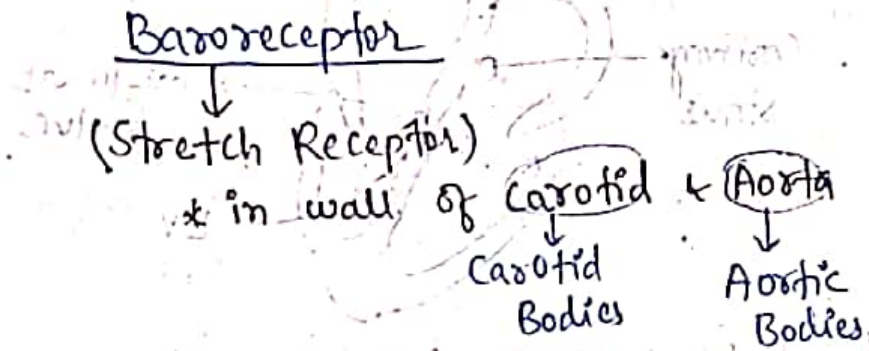 Baroreceptor
↓
(Stretch Receptor)
* in wall of Carotid & Aorta
↓ ↓
Carotid Bodies
Aortic Bodies